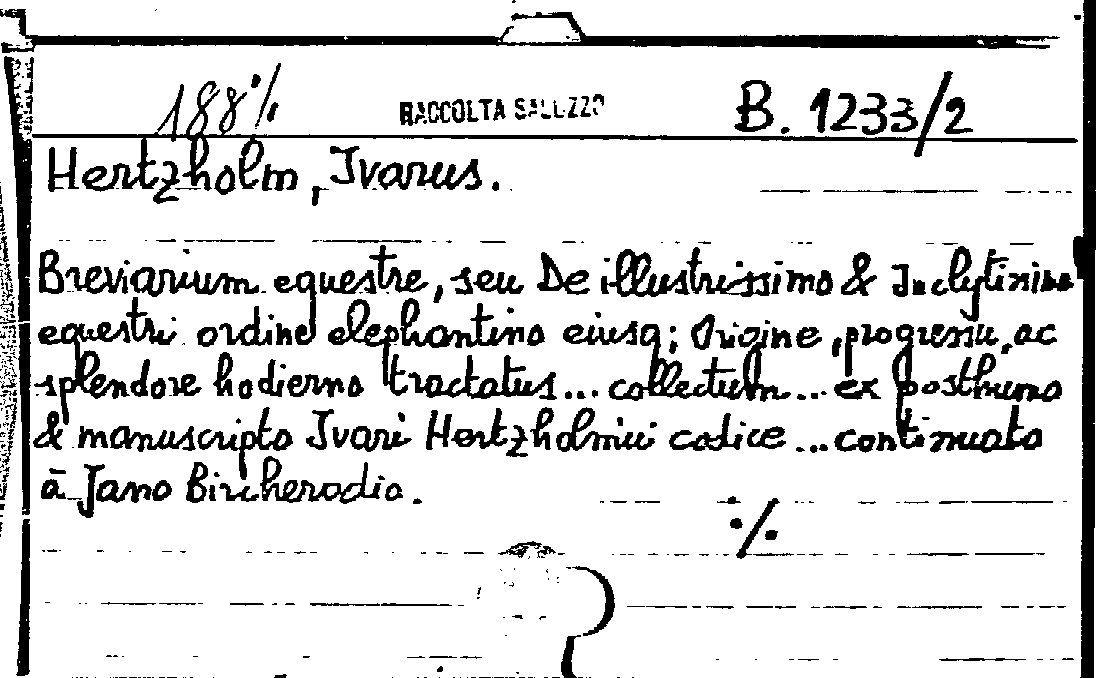 188 ./. RACCOLTA SALUZZO B. 1233/2
Hertzholm, Ivarus.
Breviarium equestre, seu De illustrissimo & Inclytissimo
equestri ordine elephantino eiusq; Origine, progressu, ac
splendore hodierno tractatus... collectum... ex posthumo
& manuscripto Ivari Hertzholmii codice ... continuato
à Jano Bircherodio.
./.